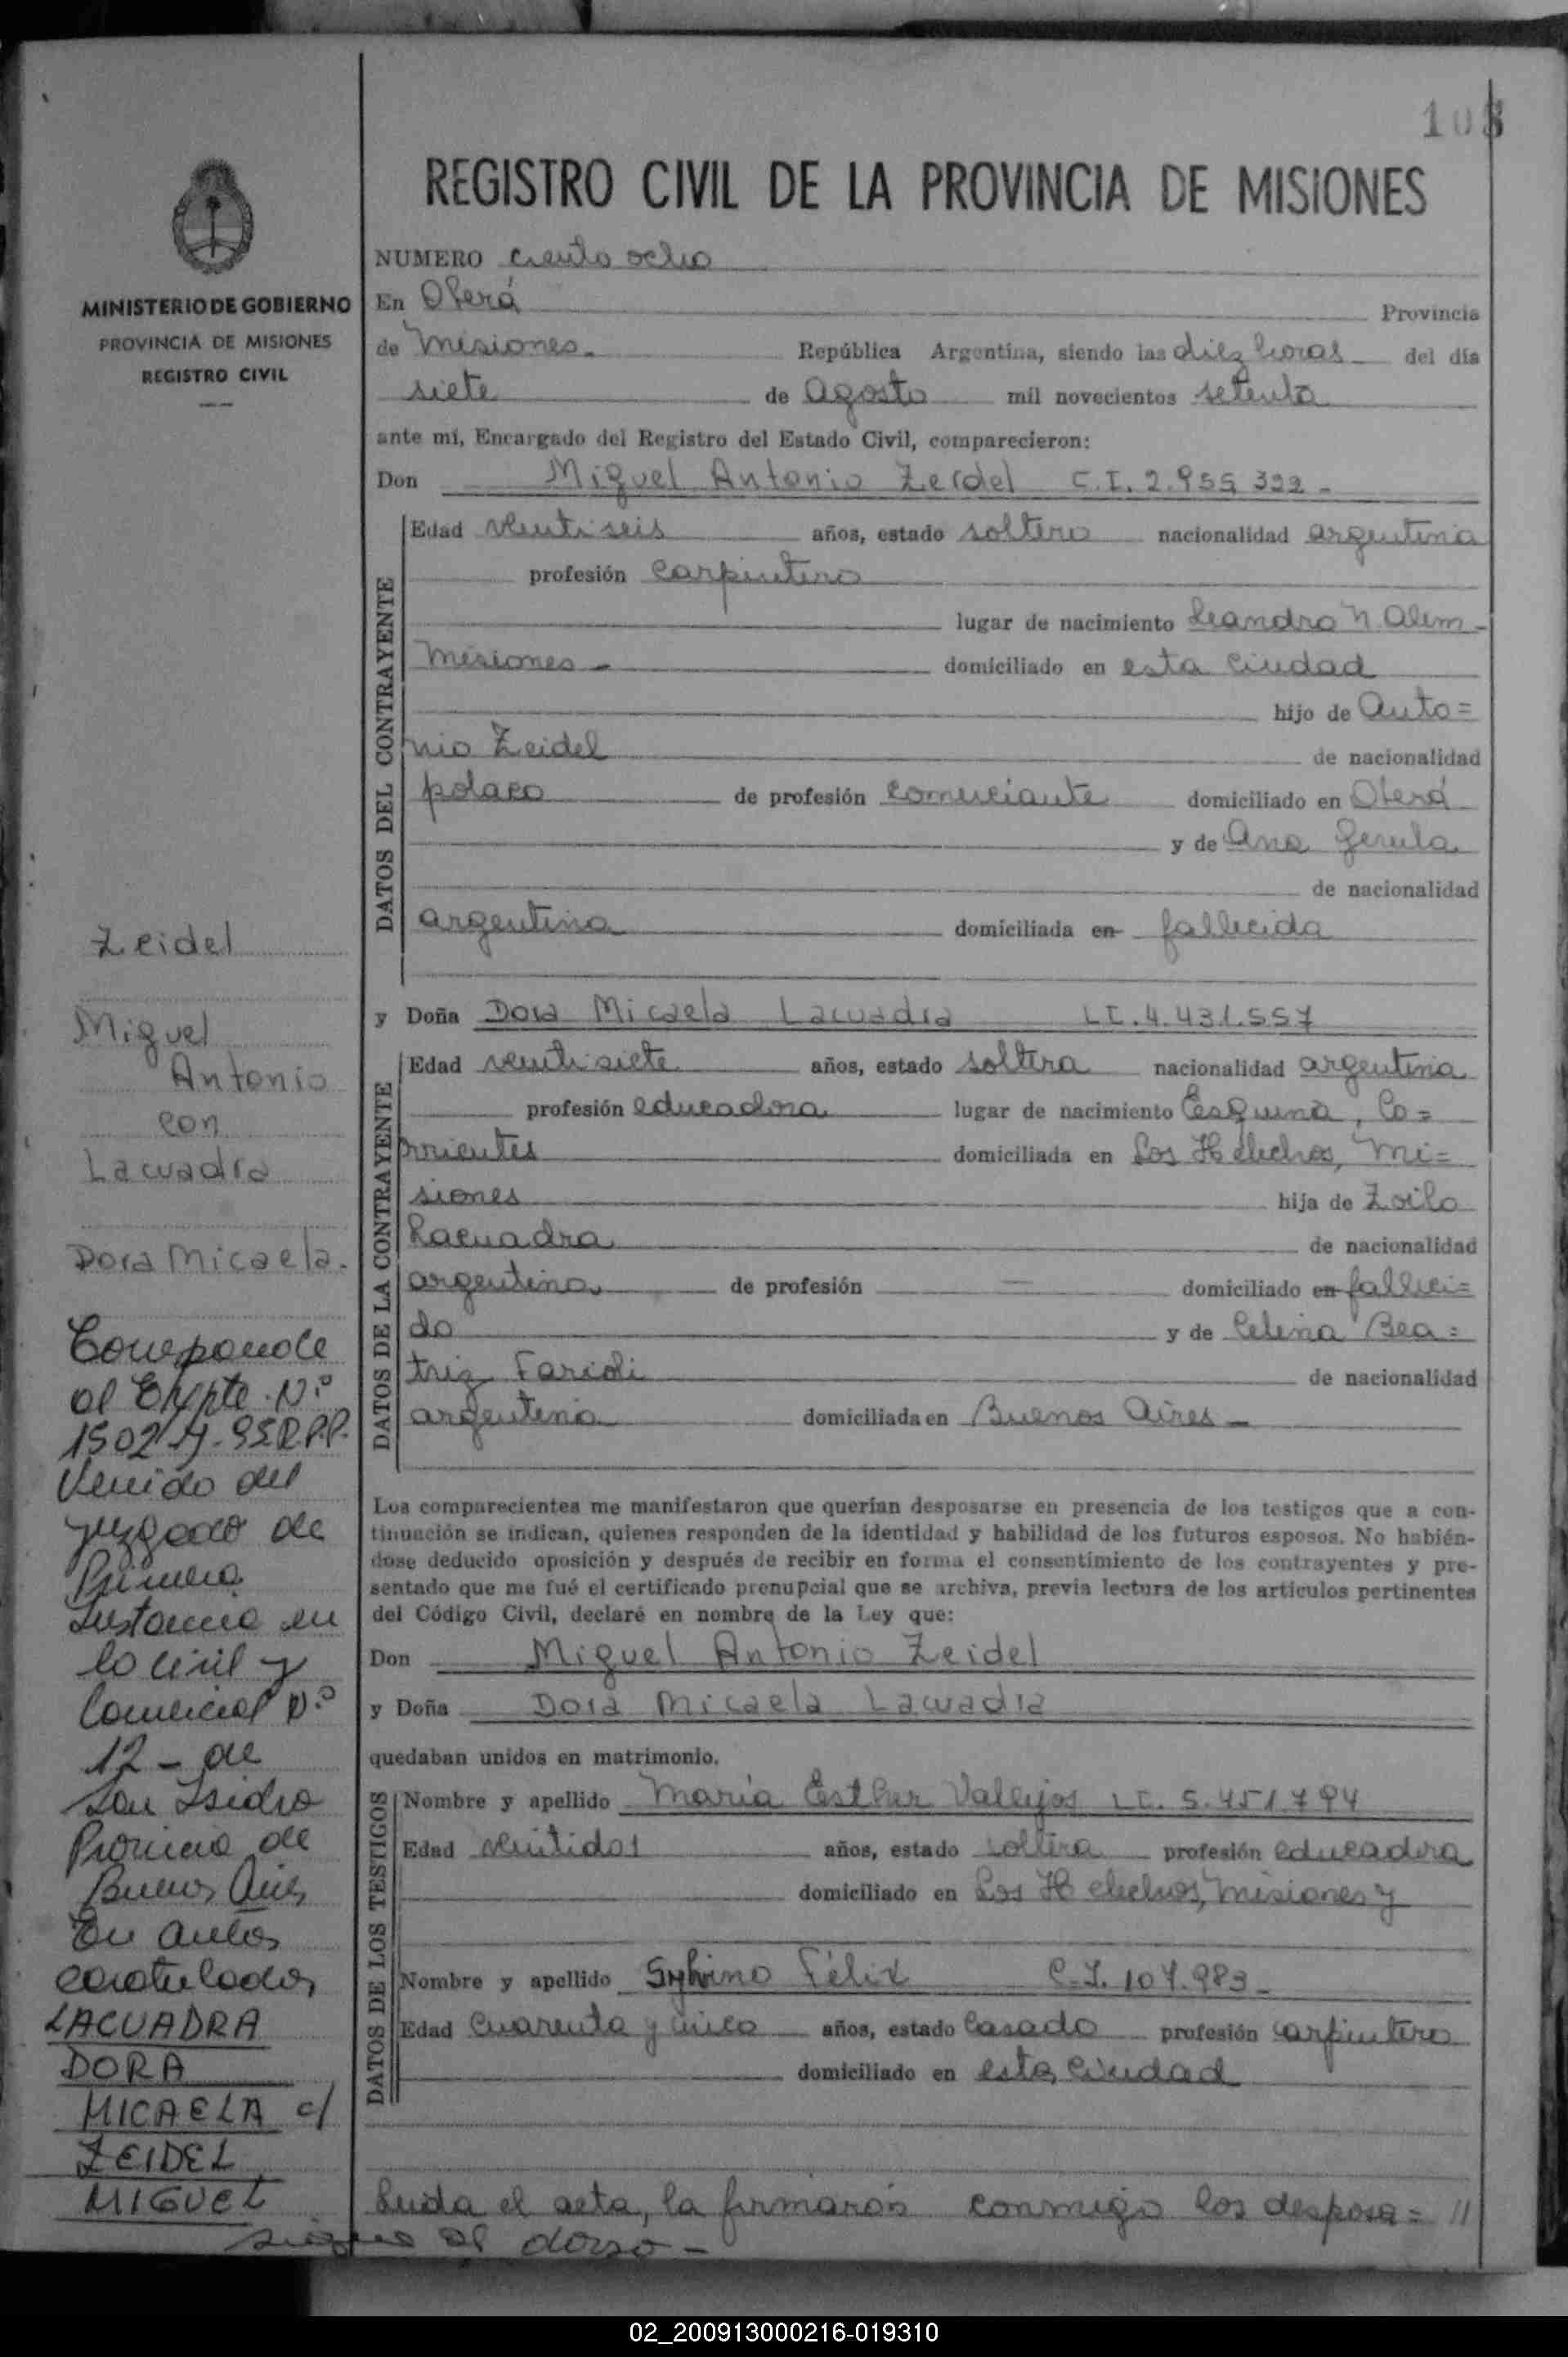 108
REGISTRO CIVIL DE LA PROVINCIA DE MISIONES
MINISTERIO DE GOBIERNO
PROVINCIA DE MISIONES
REGISTRO CIVIL
NUMERO ciento ocho
En Oberá Provincia
de Misiones.- República Argentina, siendo las diez horas del día
siete de Agosto mil novecientos setenta
ante mí, Encargado del Registro del Estado Civil, comparecieron:
Don Miguel Antonio Zeidel C.I. 2.955 322 -
DATOS DEL CONTRAYENTE
Edad veintiseis años, estado soltero nacionalidad argentina
profesión carpintero
lugar de nacimiento Leandro N. Alem-
Misiones - domiciliado en esta ciudad
hijo de Anto=
nio Zeidel de nacionalidad
polaco de profesión comerciante domiciliado en Oberá
y de Ana Gerula
de nacionalidad
argentina domiciliada en fallecida
y Doña Dora Micaela Lacuadra LC. 4.431.557
DATOS DE LA CONTRAYENTE
Edad veintisiete años, estado soltera nacionalidad argentina
profesión educadora lugar de nacimiento Esquina, Co=
rrientes domiciliada en Los Helechos, Mi=
siones hija de Zoilo
Lacuadra de nacionalidad
argentina de profesión — domiciliado en falleci=
do y de Celina Bea=
triz Farioli de nacionalidad
argentina domiciliada en Buenos Aires -
Los comparecientes me manifestaron que querían desposarse en presencia de los testigos que a con-
tinuación se indican, quienes responden de la identidad y habilidad de los futuros esposos. No habién-
dose deducido oposición y después de recibir en forma el consentimiento de los contrayentes y pre-
sentado que me fué el certificado prenupcial que se archiva, previa lectura de los artículos pertinentes
del Código Civil, declaré en nombre de la Ley que:
Don Miguel Antonio Zeidel
y Doña Dora Micaela Lacuadra
quedaban unidos en matrimonio.
DATOS DE LOS TESTIGOS
Nombre y apellido María Esther Vallejos LC. 5.451.794
Edad veintidos años, estado soltera profesión educadora
domiciliado en Los Helechos, Misiones y
Nombre y apellido Sylvino Félix C.I. 107.983-
Edad cuarenta y cinco años, estado casado profesión carpintero
domiciliado en esta ciudad
Leida el acta, la firmaron conmigo los desposa= //
Zeidel
Miguel
Antonio
con
Lacuadra
Dora Micaela.
Corresponde
al Expte. Nº
1502
Venido del
juzgado de
Primera
Instancia en
lo civil y
Comercial Nº
12 - de
San Isidro
Provincia de
Buenos Aires
En autos
caratulados
LACUADRA
DORA
MICAELA c/
ZEIDEL
MIGUEL
sigue al dorso -
02_200913000216-019310